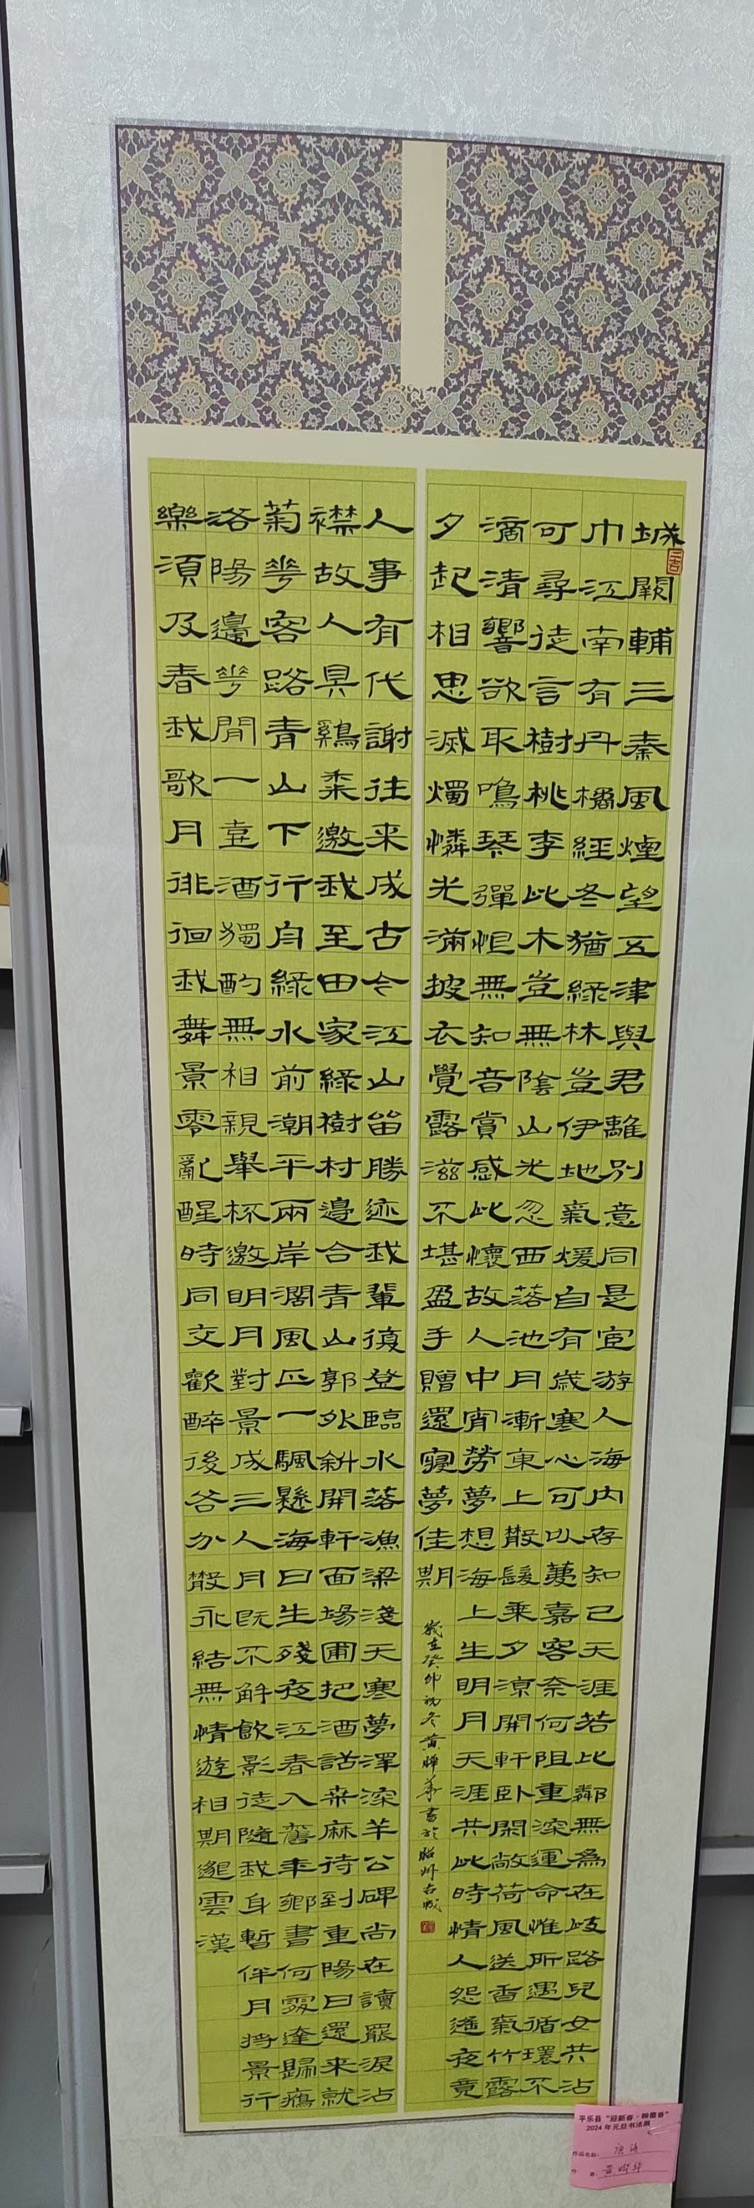 城闕輔三秦風煙望五津與君離別意同是宦游人海内存知己天涯若比鄰無為在歧路兒女共沾
巾江南有丹橘經冬猶綠林豈伊地氣煖自有歲寒心可以薦嘉客奈何阻重深運命惟所遇循環不
可尋徒言樹桃李此木豈無陰山光忽西落池月漸東上散髮乘夕涼開軒臥閑敞荷風送香氣竹露
滴清響欲取鳴琴彈恨無知音賞感此懷故人中宵勞夢想海上生明月天涯共此時情人怨遙夜竟
夕起相思滅燭憐光滿披衣覺露滋不堪盈手贈還寢夢佳期
歲在癸卯初冬黄曄華書於昭州古城
人事有代謝往来成古今江山留勝迹我輩復登臨水落漁梁淺天寒夢澤深羊公碑尚在讀罷淚沾
襟故人具鷄黍邀我至田家綠樹村邊合青山郭外斜開軒面場圃把酒話桑麻待到重陽日還来就
菊花客路青山下行舟綠水前潮平兩岸濶風正一颿懸海日生殘夜江春入舊年鄉書何處達歸鴈
洛陽邊花間一壺酒獨酌無相親舉杯邀明月對景成三人月既不解飲影徒隨我身暫伴月將景行
樂須及春我歌月徘徊我舞景零亂醒時同交歡醉後各分散永結無情遊相期邈雲漢
平乐县“迎新春·翰墨香”
2024年元旦书法展
作品名称：唐诗
作者：黄晔华